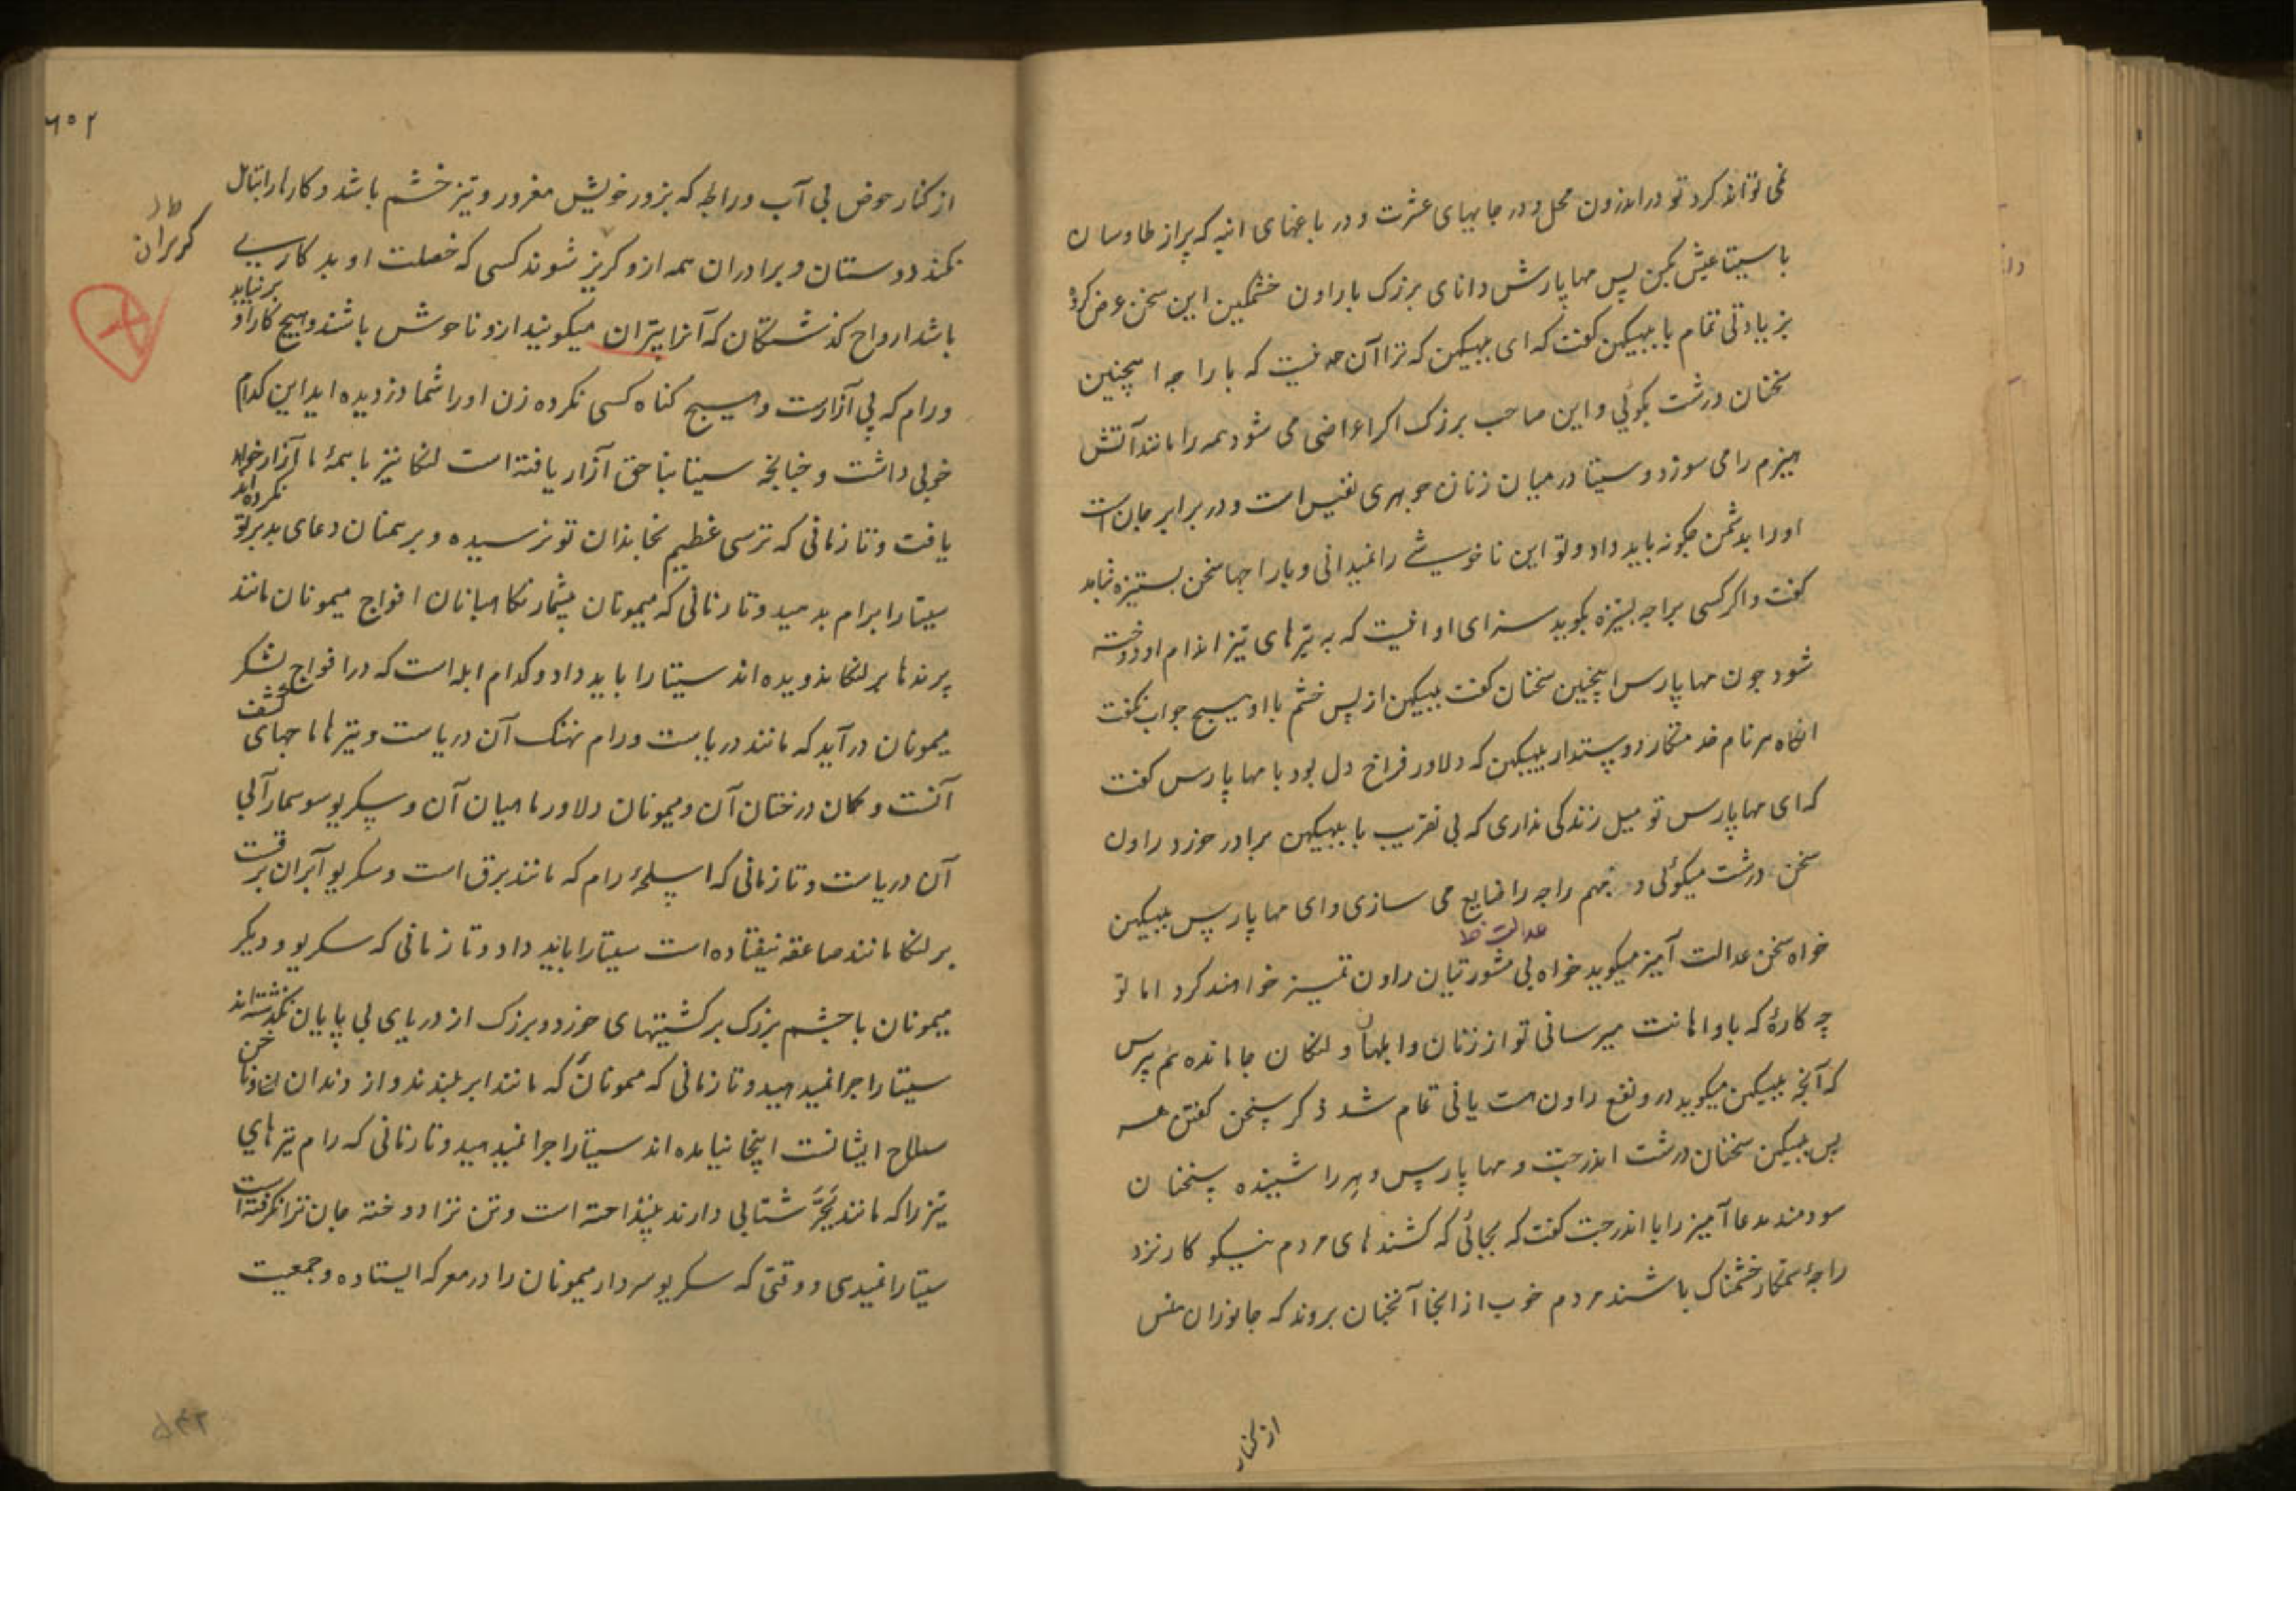 نمی تواند کرد تو در اندرون محل و در جایهای عشرت و در باغهای انبه که پر از طاوسان
با سیتا عیش بکن پس مهاپارش دانای بزرک با راون خشمکین این سخن عرض کرده
بزیادتی تمام با ببیکهن کفت که ای ببیکهن که ترا آن حد نیست که با راجه اینچنین
سخنان درشت بکوئی و این صاحب بزرک اکر اعراضی می شود همه را مانند آتش
هیزم را می سوزد و سیتا در میان زنان جوهری نفیس است و در برابر جان است
او را بدشمن چکونه باید داد و تو این ناخوشے را نمیدانی و با راجها سخن بستیزه نباید
کفت و اکر کسی براجه بستیزه بکوید سزای او انیست که به تیرهای تیز اندام او دوخته
شود چون مهاپارس اینچنین سخنان کفت ببیکهن از پس خشم با او هیچ جواب نکفت
انکاه هر نام خدمتکار دوستدار ببیکهن که دلاور فراخ دل بود با مهاپارس کفت
که ای مهاپارس تو میل زندکی نداری که بی تقریب با ببیکهن برادر خورد راون
سخن درشت میکوئی و مهم راجه را ضایع می سازی و ای مهاپارس ببیکهن
عدالت خط
خواه سخن عدالت آمیز میکوید خواه بی مشورتیان راون تمیز خواهند کرد اما تو
چه کارهٔ که باو اهانت میرسانی تو از زنان و ابلهان و لنکان جا مانده هم پرس
که آنچه ببیکهن میکوید در و نفع راون هست یا نی تمام شد ذکر سخن کفتن هر
پس ببیکهن سخنان درشت اندرجت و مهاپارس و هر را شنیده سخنان
سودمند مدعا آمیز را با اندرجت کفت که بجائی که کشندهای مردم نیکو کار نزد
راجهٔ ستمکار خشمناک باشند مردم خوب از انجا آنچنان بروند که جانوران
از کنار
۶۰۲
از کنار حوض بی آب و راجه که بزور خویش مغرور و تیز خشم باشد و کارها را بتامل
نکند دوستان و برادران همه ازو کریز شوند کسی که خصلت او بد کاریے
باشد ارواح کذشتکان که آنرا پتران میکویند ازو ناخوش باشند و هیچ کار او
برنیاید
و رام که بی آزارست و هیچ کناه کسی نکرده زن او را شما دزدیده اید این کدام
خوبی داشت و چنانچه سیتا بناحق آزار یافته است لنکا نیز با همهٔ ما آزار خواهد
یافت و تا زمانی که ترسی عظیم بخاندان تو نرسیده و برهمنان دعای بد بر تو
نکرده اند
سیتا را برام بدهید و تا زمانی که میمونان بیشمار نکاهبانان افواج میمونان مانند
پرندها بر لنکا ندویده اند سیتا را باید داد و کدام ابله است که در افواج لشکر
میمونان درآید که مانند دریاست و رام نهنک آن دریاست و تیرها ماجهای
آنست و کمان درختان آن و میمونان دلاور ماهیان آن و سکریو سوسمار آبی
آن دریاست و تا زمانی که اسلحهٔ رام که مانند برق است و سکریو آنران
بر لنکا مانند صاعقه نیفتاده است سیتا را باید داد و تا زمانی که سکریو و دیکر
میمونان با چشم بزرک بر کشتیهای خورد و بزرک از دریای بی پایان نکذشته اند
سیتا را چرا نمیدهید و تا زمانی که میمونان که مانند ابر بلندند و از دندان و ناخن
سلاح ایشانست اینجا نیامده اند سیتا را چرا نمیدهید و تا زمانی که رام تیرهای
تیز را که مانند بجر شتابی دارند نینداخته است و تن ترا دوخته جان ترا نکرفته است
سیتا را نمیدی و وقتی که سکریو سردار میمونان را در معرکه ایستاده و جمعیت
۵۴۲